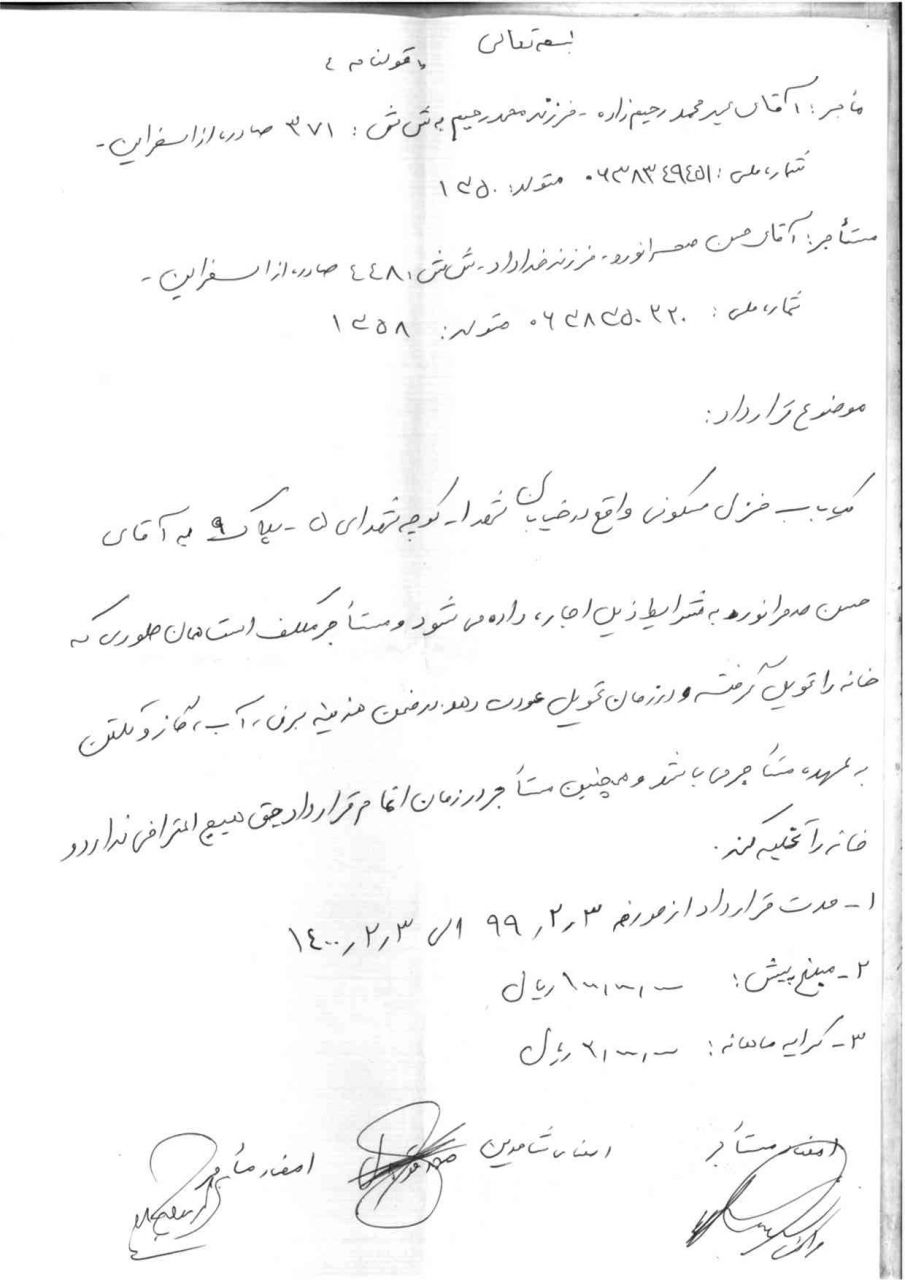 بسمه تعالی
« قولنامه »
مأجر: آقای عیدمحمد رحیم زاده - فرزند محمد رحیم به ش ش: ۳۷۱ صادره از اسفراین -
شماره ملی: ۰۶۳۸۳۴۹۴۵۱ متولد: ۱۳۵۰
مستأجر: آقای حسن صحرانورد - فرزند خداداد - ش ش: ۴۴۸ صادره از اسفراین -
شماره ملی: ۰۶۳۸۳۵۰۳۲۰ متولد: ۱۳۵۸
موضوع قرارداد:
یکباب منزل مسکونی واقع در خیابان شهدا - کوچه شهدای ۵ - پلاک ۹ به آقای
حسن صحرانورد به شرایط ذیل اجاره داده می شود و مستأجر مکلف است همان طوری که
خانه را تحویل گرفته و در زمان تحویل عودت دهد در ضمن هزینه برق، آب، گاز و تلفن
به عهده مستأجر می باشد و همچنین مستأجر در زمان اتمام قرارداد حق هیچ اعتراضی ندارد و
خانه را تخلیه کند.
۱- مدت قرارداد از مورخه ۹۹٫۲٫۳ الی ۱۴۰۰٫۲٫۳
۲- مبلغ پیش: ۱۰۰٫۰۰۰٫۰۰۰ ریال
۳- کرایه ماهانه: ریال
امضاء مستأجر امضاء شاهدین امضاء مأجر